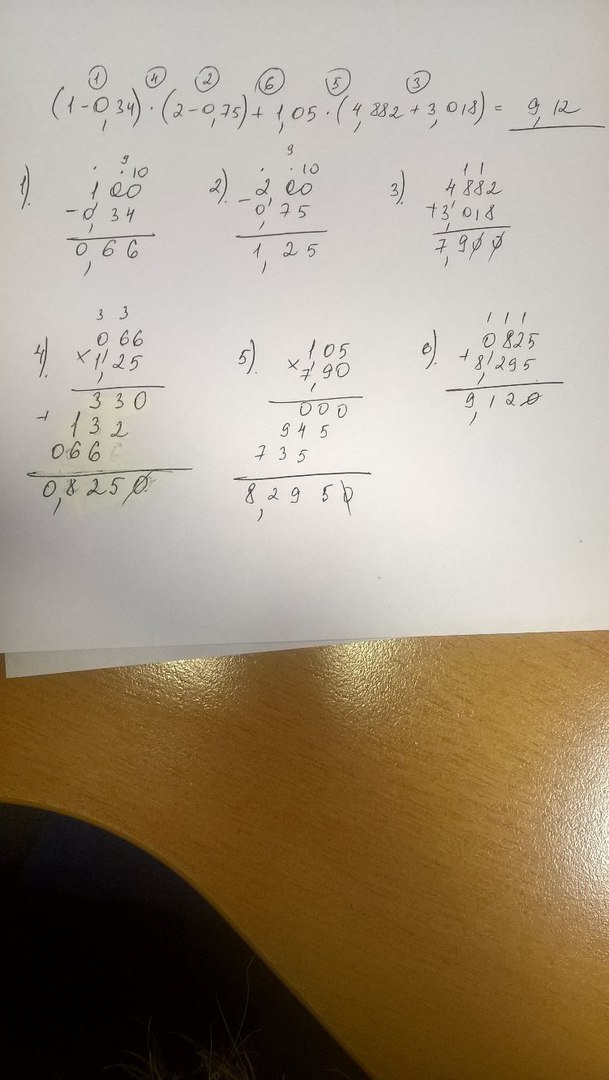 ① ④ ② ⑥ ⑤ ③
(1-0,34) · (2-0,75) + 1,05 · (4,882 + 3,018) = 9,12
1).
9
· · 10
1,00
- 0,34
0,66
2).
9
· · 10
2,00
- 0,75
1,25
3)
1 1
4,882
+ 3,018
7,900
4).
3 3
0,66
× 1,25
330
+ 132
066
0,8250
5).
1,05
× 7,90
000
945
735
8,2950
6).
1 1 1
0,825
+ 8,295
9,120